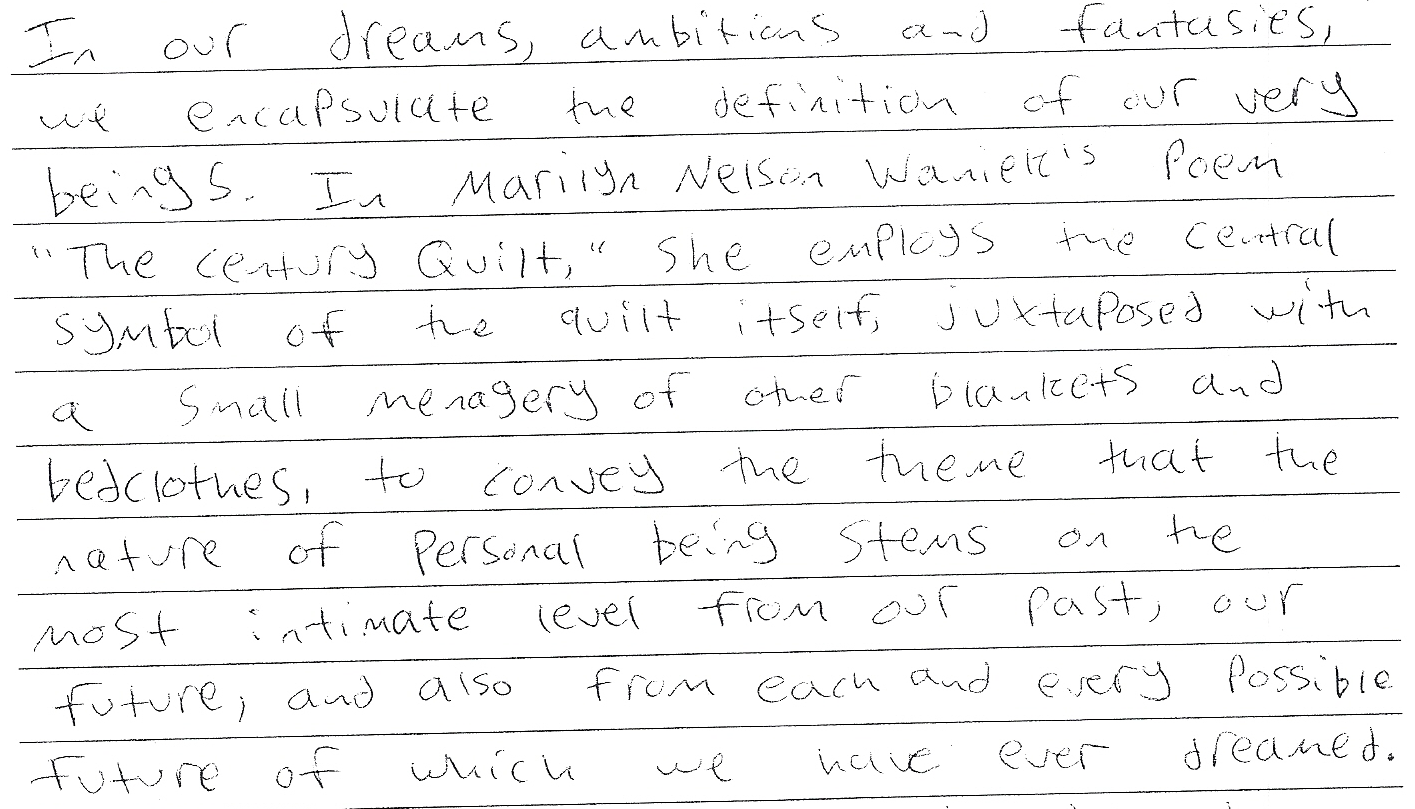 In our dreams, ambitions and fantasies,
we encapsulate the definition of our very
beings. In Marilyn Nelson Waniek's poem
"The Century Quilt," she employs the central
symbol of the quilt itself, juxtaposed with
a small menagery of other blankets and
bedclothes, to convey the theme that the
nature of personal being stems on the
most intimate level from our past, our
future, and also from each and every possible
future of which we have ever dreamed.